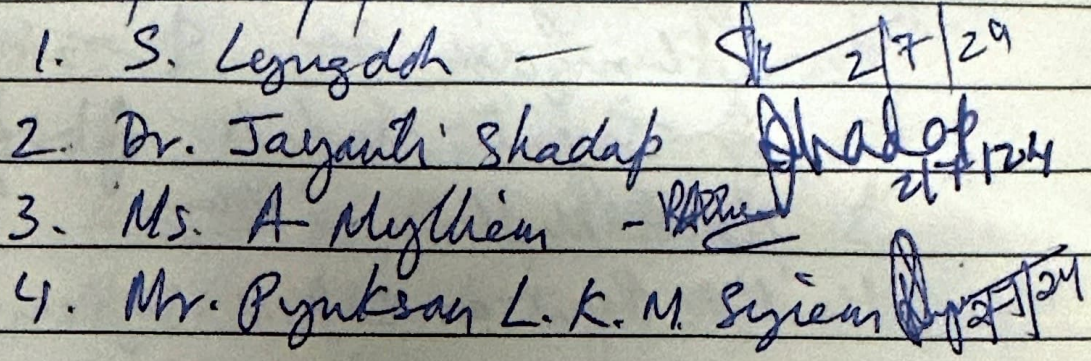 1. S. Lyngdoh - 2/7/24
2. Dr. Jayanti Shadap Shadap 2/7/24
3. Ms. A Mylliem -
4. Mr. Pynksan L. K. M. Syiem 2/7/24